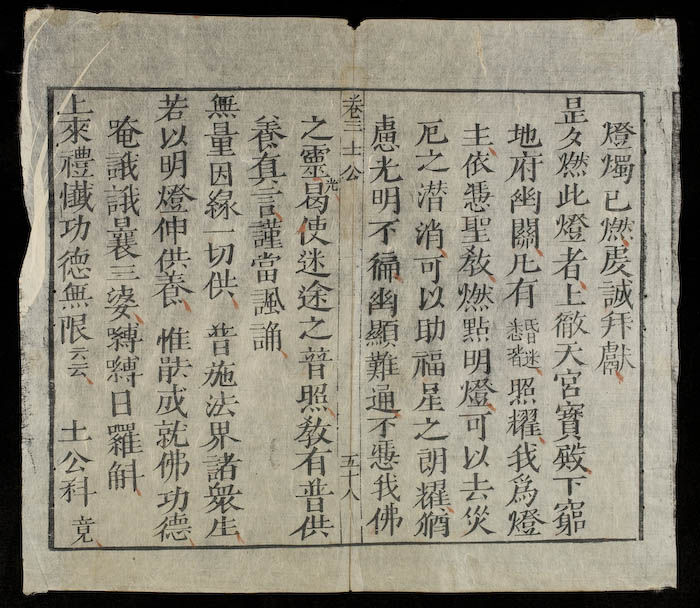 燈燭已燃虔誠拜獻
是夕燃此燈者上徹天宮寳殿下窮
地府幽關凡有昏迷悉皆照耀我為燈
主依憑聖教燃點明燈可以去災
厄之潜消可以助福星之朗耀猶
慮光明不徧幽顯難通不憑我佛
卷三 土公 五十八
之靈光曷使迷途之普照教有普供
養真言謹當諷誦
無量因緣一切供 普施法界諸衆生
若以明燈伸供養 惟能成就佛功德
唵誐誐曩三婆縛縛日羅斛
上來禮懺功德無限云云 土公科竟